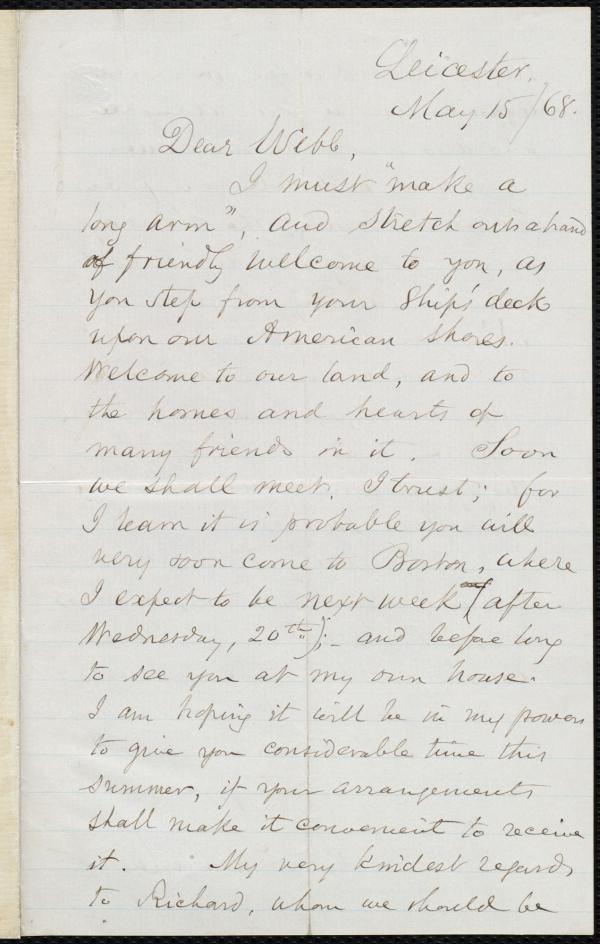 Leicester.
May 15/68.
Dear Webb,
I must "make a
long arm", and stretch out a hand
of friendly welcome to you, as
you step from your Ship's deck
upon our American shores.
Welcome to our land, and to
the homes and hearts of
many friends in it. Soon
we shall meet, I trust; for
I learn it is probable you will
very soon come to Boston, where
I expect to be next week (after
Wednesday, 20th); - and before long
to see you at my own house.
I am hoping it will be in my power
to give you considerable time this
summer, if your arrangements
shall make it convenient to receive
it. My very kindest regards
to Richard, whom we should be